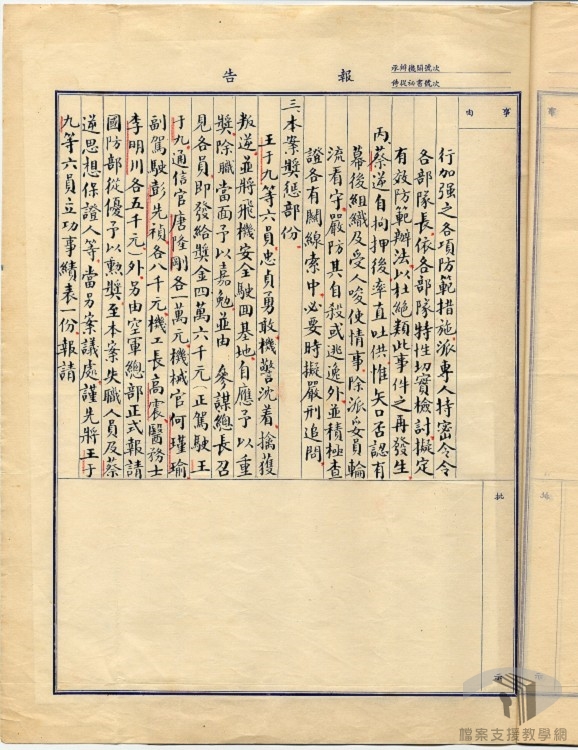 報告
承辦機關號次
侍從祕書號次
事由
行加強之各項防範措施派專人特密令令
各部隊長依各部隊特性切實檢討擬定
有效防範辦法以杜絕類此事件之再發生
丙、蔡逆自拘押後率直吐供惟矢口否認有
幕後組織及受人唆使情事除派妥員輪
流看守嚴防其自殺或逃逸外並積極查
證各有關線索中必要時擬嚴刑追問
三、本案獎懲部份
王于九等六員忠貞勇敢機警沈着擒獲
叛逆並將飛機安全駛回基地自應予以重
獎除職當面予以嘉勉並由 參謀總長召
見各員即發給獎金四萬六千元(正駕駛王
于九通信官唐隆剛各一萬元機械官何瑾瑜
副駕駛彭先禎各八千元機工長高震醫務士
李明川各五千元)外另由空軍總部正式報請
國防部從優予以勳獎至本案失職人員及蔡
逆思想保證人等當另案議處謹先將王于
九等六員立功事績表一份報請
批
事
檔案支援教學網